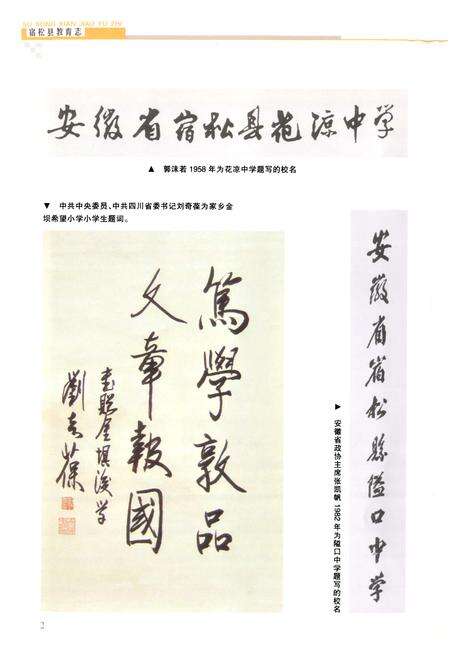 SU SONG XIAN JIAO YU ZHI
宿松县教育志
安徽省宿松县花凉中学
▲ 郭沫若1958年为花凉中学题写的校名
▼ 中共中央委员、中共四川省委书记刘奇葆为家乡金
坝希望小学小学生题词。
篤學敦品
文章報國
金壩後学
劉奇葆
安徽省宿松縣隘口中学
▶ 安徽省政协主席张凯帆1982年为隘口中学题写的校名
2